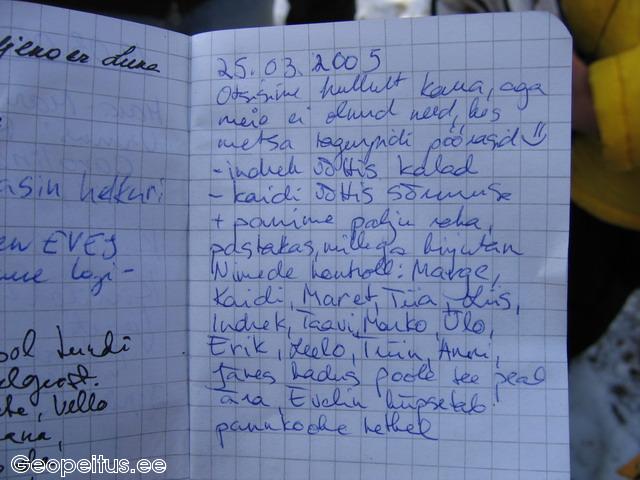 jeno er Luna
asin helkuri
EVEJ
logi-
pool
Vello
25.03.2005
Otsisime hullult kaua, aga
meie ei olnud need, kes
metsa tagurpidi pöörasid
- indrek võttis kalad
- kaidi võttis sõrmuse
+ panime palju raha,
pastakas, millega kirjutan
Nimede kontroll: Marge,
Kaidi, Maret, Tiia, Liis,
Indrek, Taavi, Marko, Ülo,
Erik, Leelo, Triin, Anni,
Janes kadus poole tee peal
ära Evelin küpsetab
pannkooke hetkel
Geopeitus.ee